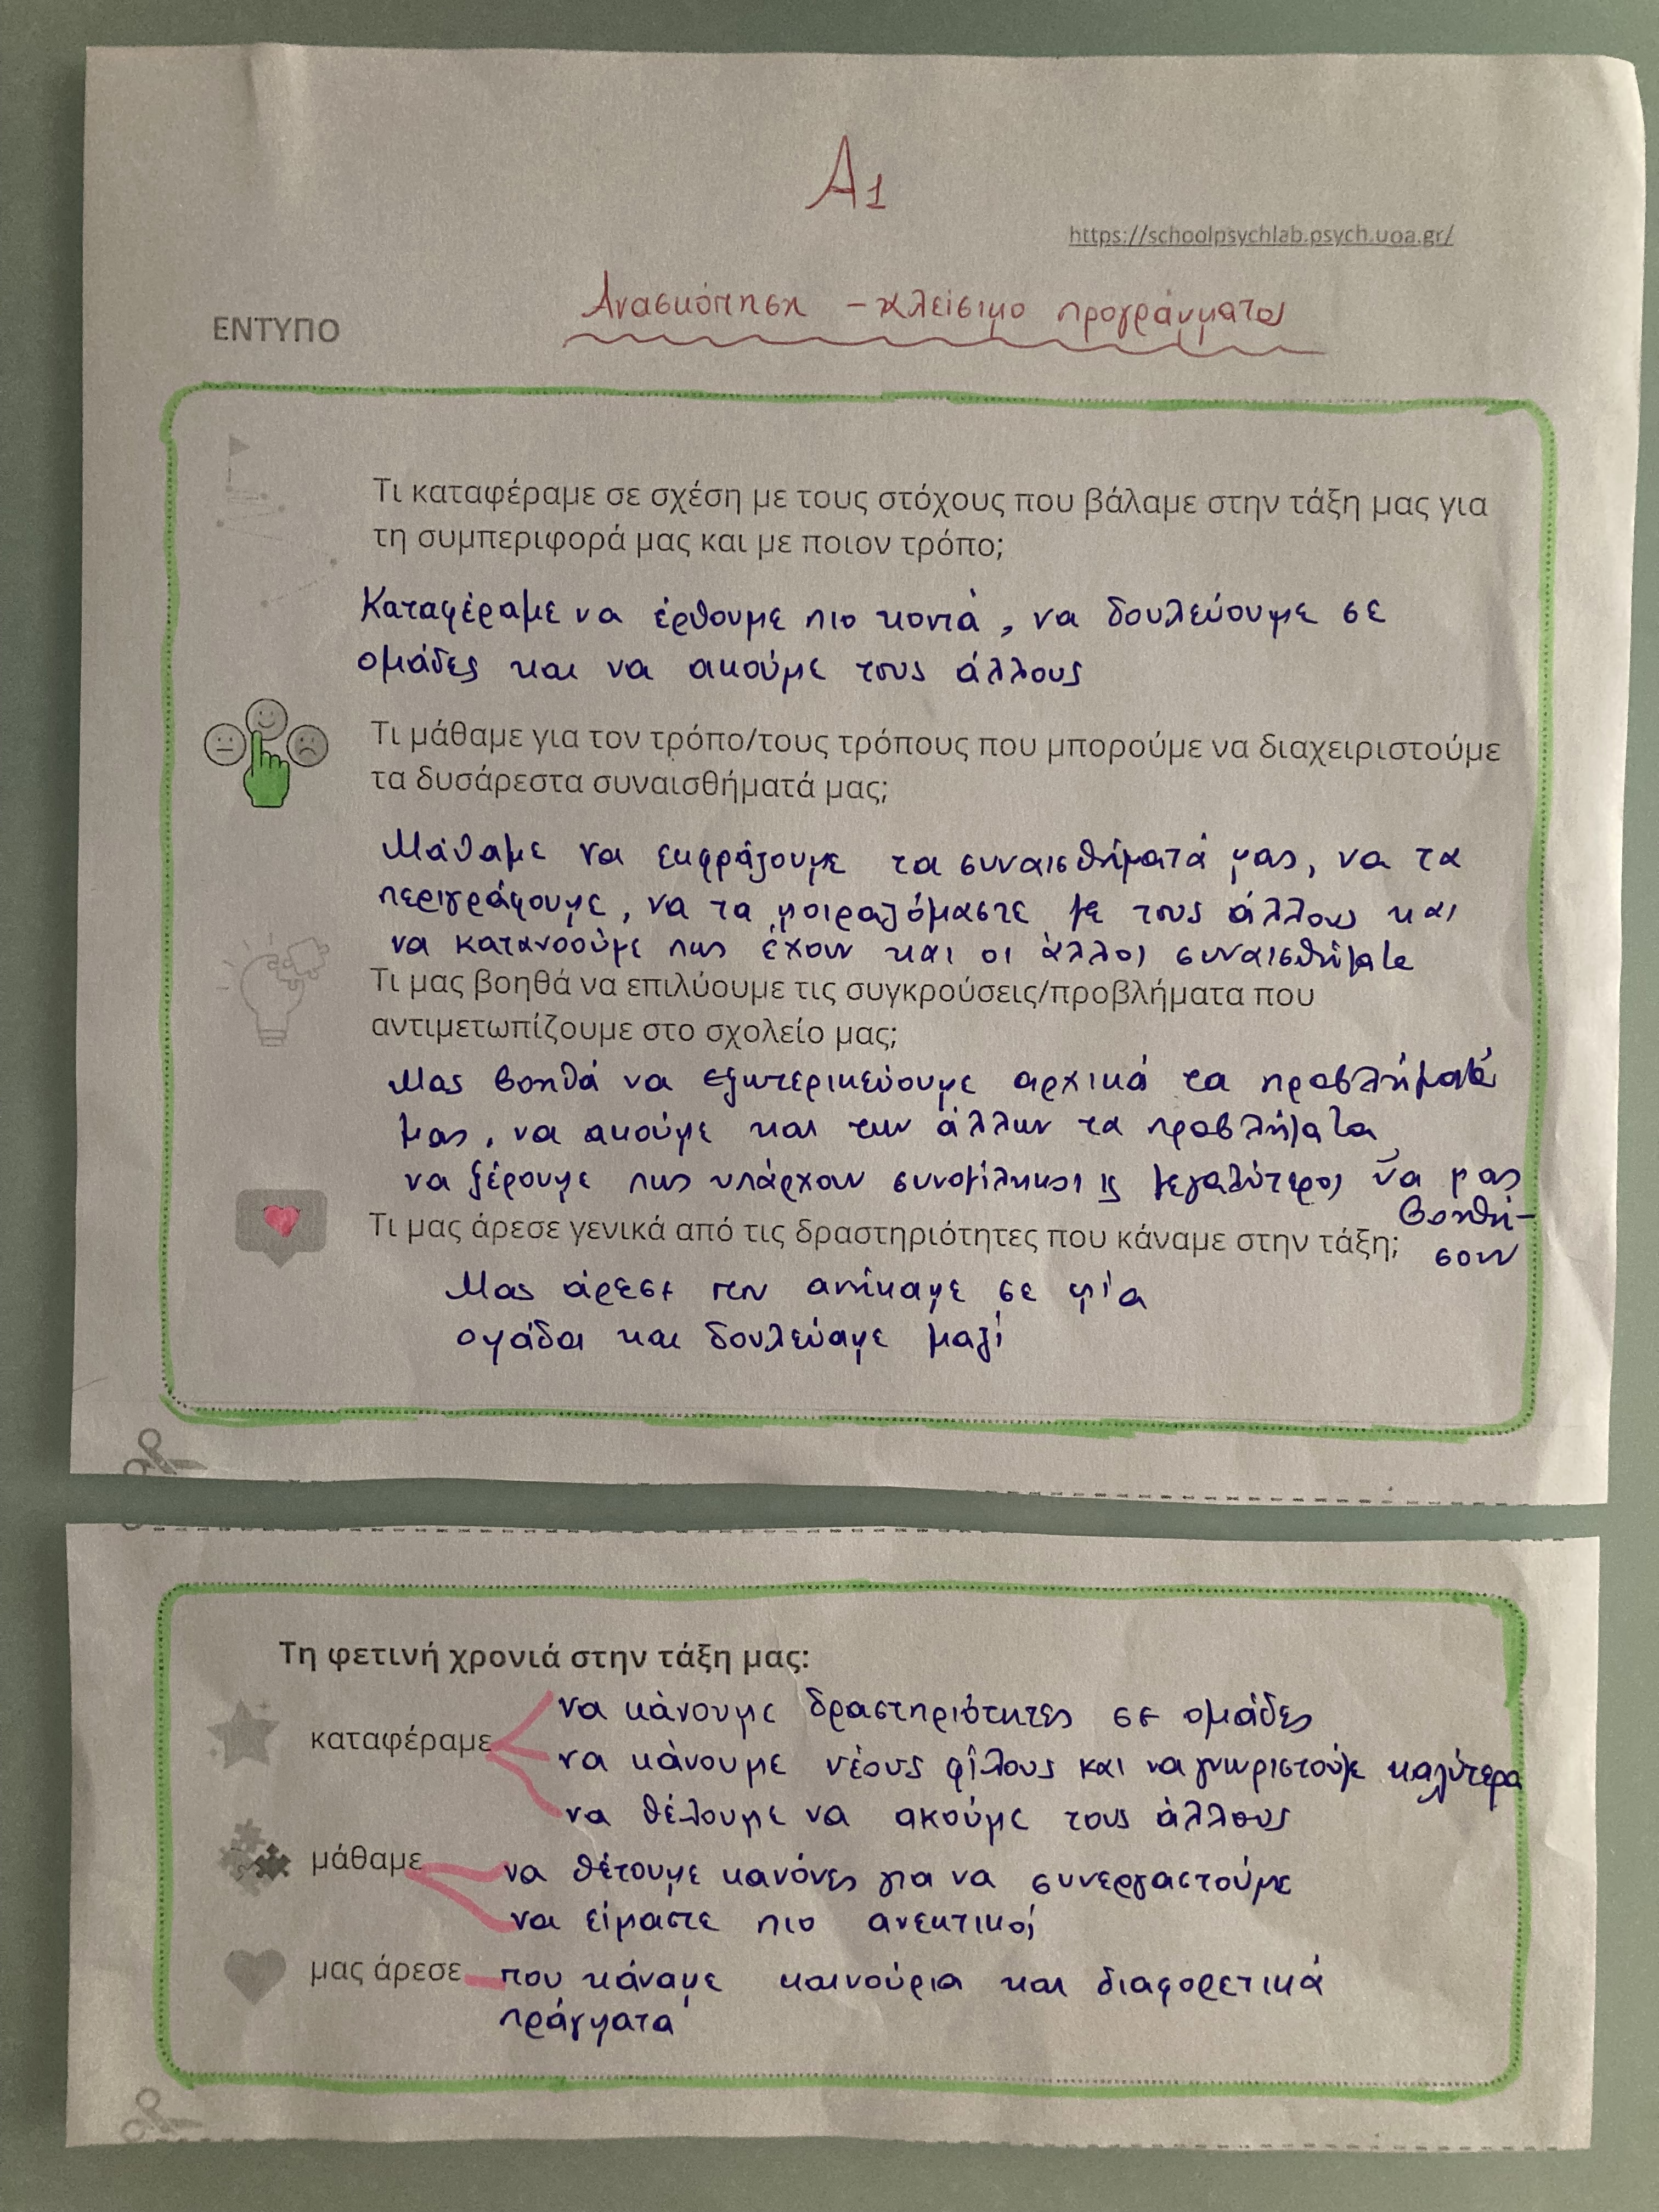 Α1
https://schoolpsychlab.psych.uoa.gr/
Ανασκόπηση - κλείσιμο προγράμματος
ΕΝΤΥΠΟ
Τι καταφέραμε σε σχέση με τους στόχους που βάλαμε στην τάξη μας για
τη συμπεριφορά μας και με ποιον τρόπο;
Καταφέραμε να έρθουμε πιο κοντά, να δουλεύουμε σε
ομάδες και να ακούμε τους άλλους
Τι μάθαμε για τον τρόπο/τους τρόπους που μπορούμε να διαχειριστούμε
τα δυσάρεστα συναισθήματά μας;
Μάθαμε να εκφράζουμε τα συναισθήματά μας, να τα
περιγράφουμε, να τα μοιραζόμαστε με τους άλλους και
να κατανοούμε πως έχουν και οι άλλοι συναισθήματα
Τι μας βοηθά να επιλύουμε τις συγκρούσεις/προβλήματα που
αντιμετωπίζουμε στο σχολείο μας;
Μας βοηθά να εξωτερικεύουμε αρχικά τα προβλήματά
μας, να ακούμε και των άλλων τα προβλήματα
να ξέρουμε πως υπάρχουν συνομίληκοι ϗ μεγαλύτεροι να μας
βοηθή-
σουν
Τι μας άρεσε γενικά από τις δραστηριότητες που κάναμε στην τάξη;
Μας άρεσε που ανήκαμε σε μία
ομάδα και δουλεύαμε μαζί
Τη φετινή χρονιά στην τάξη μας:
καταφέραμε να κάνουμε δραστηριότητες σε ομάδες
να κάνουμε νέους φίλους και να γνωριστούμε καλύτερα
να θέλουμε να ακούμε τους άλλους
μάθαμε να θέτουμε κανόνες για να συνεργαστούμε
να είμαστε πιο ανεκτικοί
μας άρεσε που κάναμε καινούρια και διαφορετικά
πράγματα